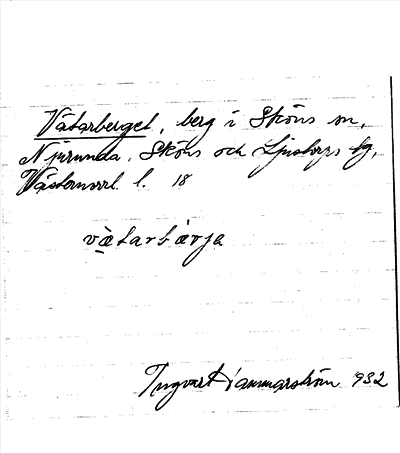 Vätarberget, berg i Sköns sn,
Njurunda, Sköns och Ljustorps tg,
Västernorrl. l. 18
vætarbærja
Ingvart Hammarström 932